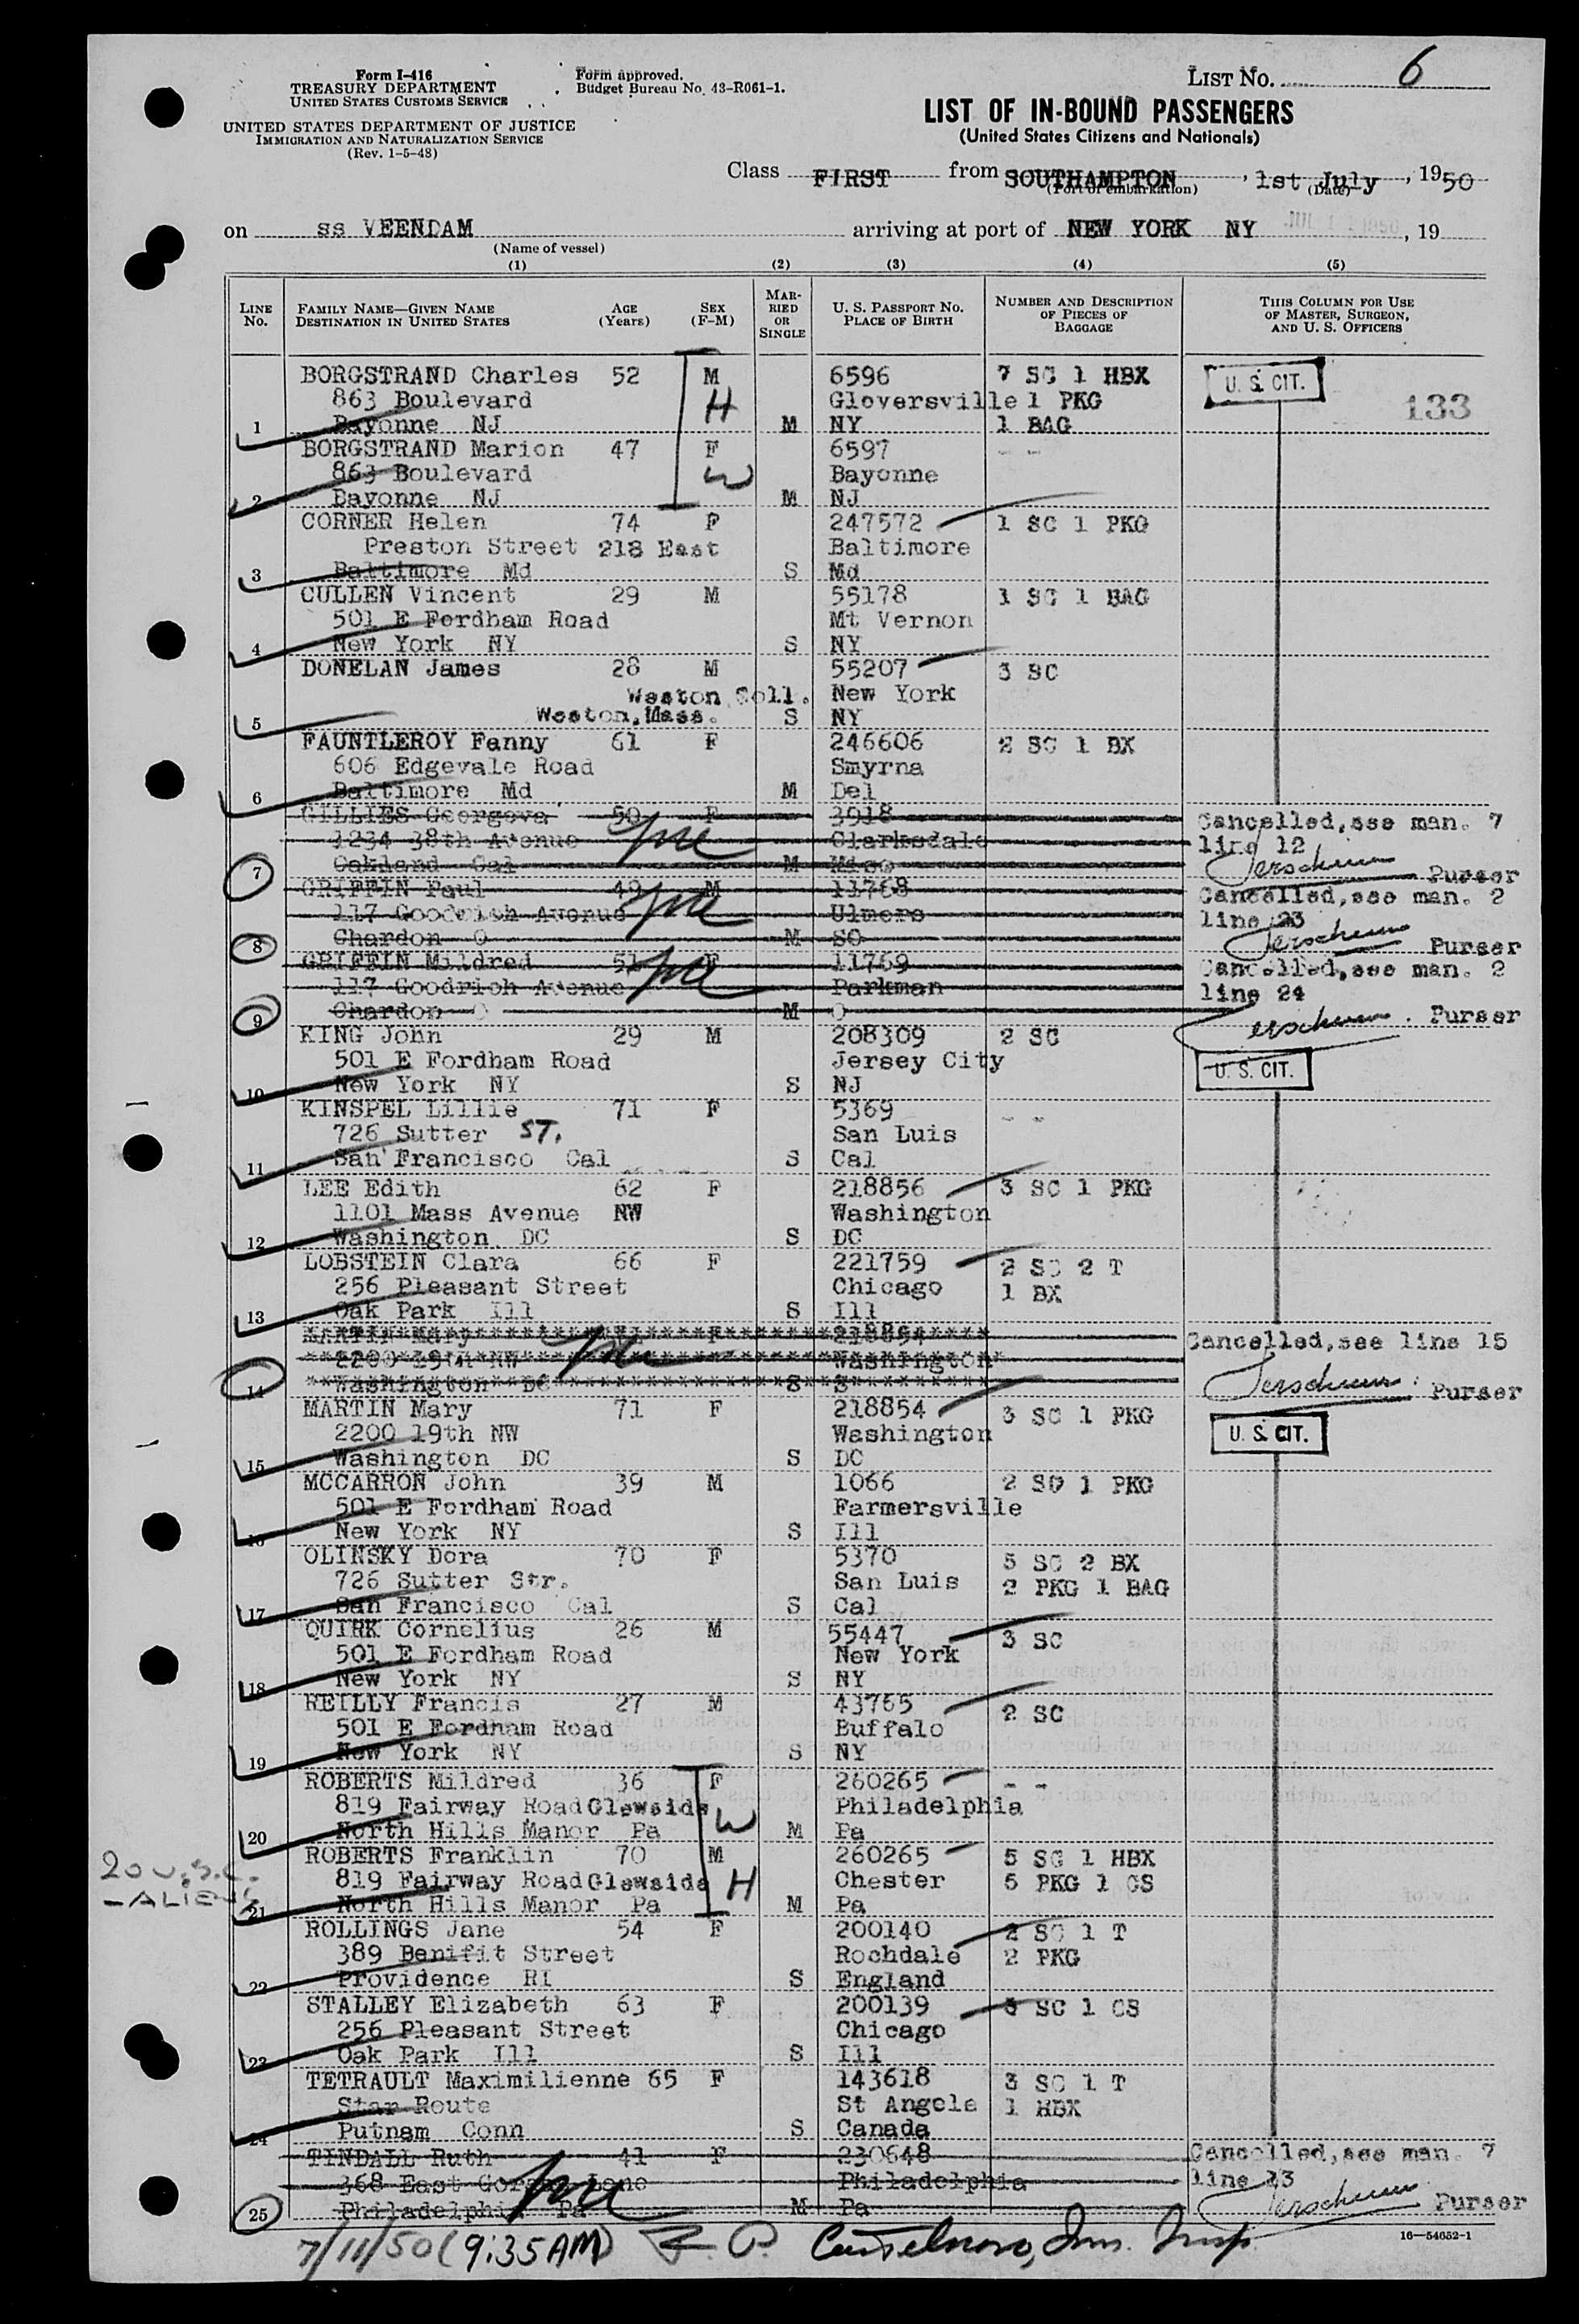 Form I-416
TREASURY DEPARTMENT
UNITED STATES CUSTOMS SERVICE
Form approved.
Budget Bureau No. 43-R061-1.
LIST No. 6
UNITED STATES DEPARTMENT OF JUSTICE
IMMIGRATION AND NATURALIZATION SERVICE
(Rev. 1-5-48)
LIST OF IN-BOUND PASSENGERS
(United States Citizens and Nationals)
Class FIRST from SOUTHAMPTON, 1st July, 1950
(Port of embarkation) (Date)
on ss VEENDAM arriving at port of NEW YORK NY JUL 11 1950, 19
(Name of vessel)
(1) (2) (3) (4) (5)
LINE No. FAMILY NAME—GIVEN NAME DESTINATION IN UNITED STATES AGE (Years) SEX (F-M) MARRIED OR SINGLE U. S. PASSPORT No. PLACE OF BIRTH NUMBER AND DESCRIPTION OF PIECES OF BAGGAGE THIS COLUMN FOR USE OF MASTER, SURGEON, AND U. S. OFFICERS
BORGSTRAND Charles 52 M 6596 7 SC 1 HBX U. S. CIT.
863 Boulevard H Gloversville 1 PKG 133
1 Bayonne NJ M NY 1 BAG
BORGSTRAND Marion 47 F 6597 - -
863 Boulevard W Bayonne
2 Bayonne NJ M NJ
CORNER Helen 74 F 247572 1 SC 1 PKG
Preston Street 218 East Baltimore
3 Baltimore Md S Md
CULLEN Vincent 29 M 55178 1 SC 1 BAG
501 E Fordham Road Mt Vernon
4 New York NY S NY
DONELAN James 28 M 55207 3 SC
Weston Coll. New York
5 Weston, Mass. S NY
FAUNTLEROY Fanny 61 F 246606 2 SC 1 BX
606 Edgevale Road Smyrna
6 Baltimore Md M Del
GILLIES Georgeva 50 F 3918 Cancelled, see man. 7
1234 38th Avenue Clarksdale line 12
7 Oakland Cal M Miss Purser
GRIFFIN Paul 49 M 11768 Cancelled, see man. 2
117 Goodrich Avenue Ulmers line 23
8 Chardon O M SC Purser
GRIFFIN Mildred 51 F 11769 Cancelled, see man. 2
117 Goodrich Avenue Parkman line 24
9 Chardon O M O Purser
KING John 29 M 208309 2 SC
501 E Fordham Road Jersey City U. S. CIT.
10 New York NY S NJ
KINSPEL Lillie 71 F 5369 - -
726 Sutter ST. San Luis
11 San Francisco Cal S Cal
LEE Edith 62 F 218856 3 SC 1 PKG
1101 Mass Avenue NW Washington
12 Washington DC S DC
LOBSTEIN Clara 66 F 221759 2 SC 2 T
256 Pleasant Street Chicago 1 BX
13 Oak Park Ill S Ill
MARTIN Mary F 218854 Cancelled, see line 15
2200 19th NW Washington
14 Washington DC S Purser
MARTIN Mary 71 F 218854 3 SC 1 PKG
2200 19th NW Washington U. S. CIT.
15 Washington DC S DC
MCCARRON John 39 M 1066 2 SC 1 PKG
501 E Fordham Road Farmersville
16 New York NY S Ill
OLINSKY Dora 70 F 5370 5 SC 2 BX
726 Sutter Str. San Luis 2 PKG 1 BAG
17 San Francisco Cal S Cal
QUIRK Cornelius 26 M 55447 3 SC
501 E Fordham Road New York
18 New York NY S NY
REILLY Francis 27 M 43765 2 SC
501 E Fordham Road Buffalo
19 New York NY S NY
ROBERTS Mildred 36 F 260265 - -
819 Fairway Road Glewside W Philadelphia
20 North Hills Manor Pa M Pa
ROBERTS Franklin 70 M 260265 5 SC 1 HBX
20 U.S.C. 819 Fairway Road Glewside H Chester 5 PKG 1 CS
- ALIENS 21 North Hills Manor Pa M Pa
ROLLINGS Jane 54 F 200140 2 SC 1 T
389 Benifit Street Rochdale 2 PKG
22 Providence RI S England
STALLEY Elizabeth 63 F 200139 3 SC 1 CS
256 Pleasant Street Chicago
23 Oak Park Ill S Ill
TETRAULT Maximilienne 65 F 143618 3 SC 1 T
Star Route St Angele 1 HBX
24 Putnam Conn S Canada
TINDALL Ruth 41 F 230648 Cancelled, see man. 7
368 East Lane Philadelphia line 13
25 Philadelphia Pa M Pa Purser
7/11/50 (9:35 AM) Imm. Insp.
16—54652-1